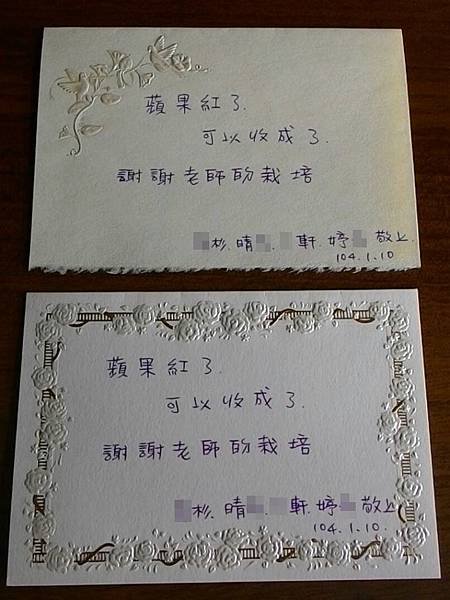 蘋果紅了.
可以收成了.
謝謝老師的栽培
杉、晴、軒、婷 敬上
104.1.10
蘋果紅了.
可以收成了.
謝謝老師的栽培
杉、晴、軒、婷 敬上
104.1.10.